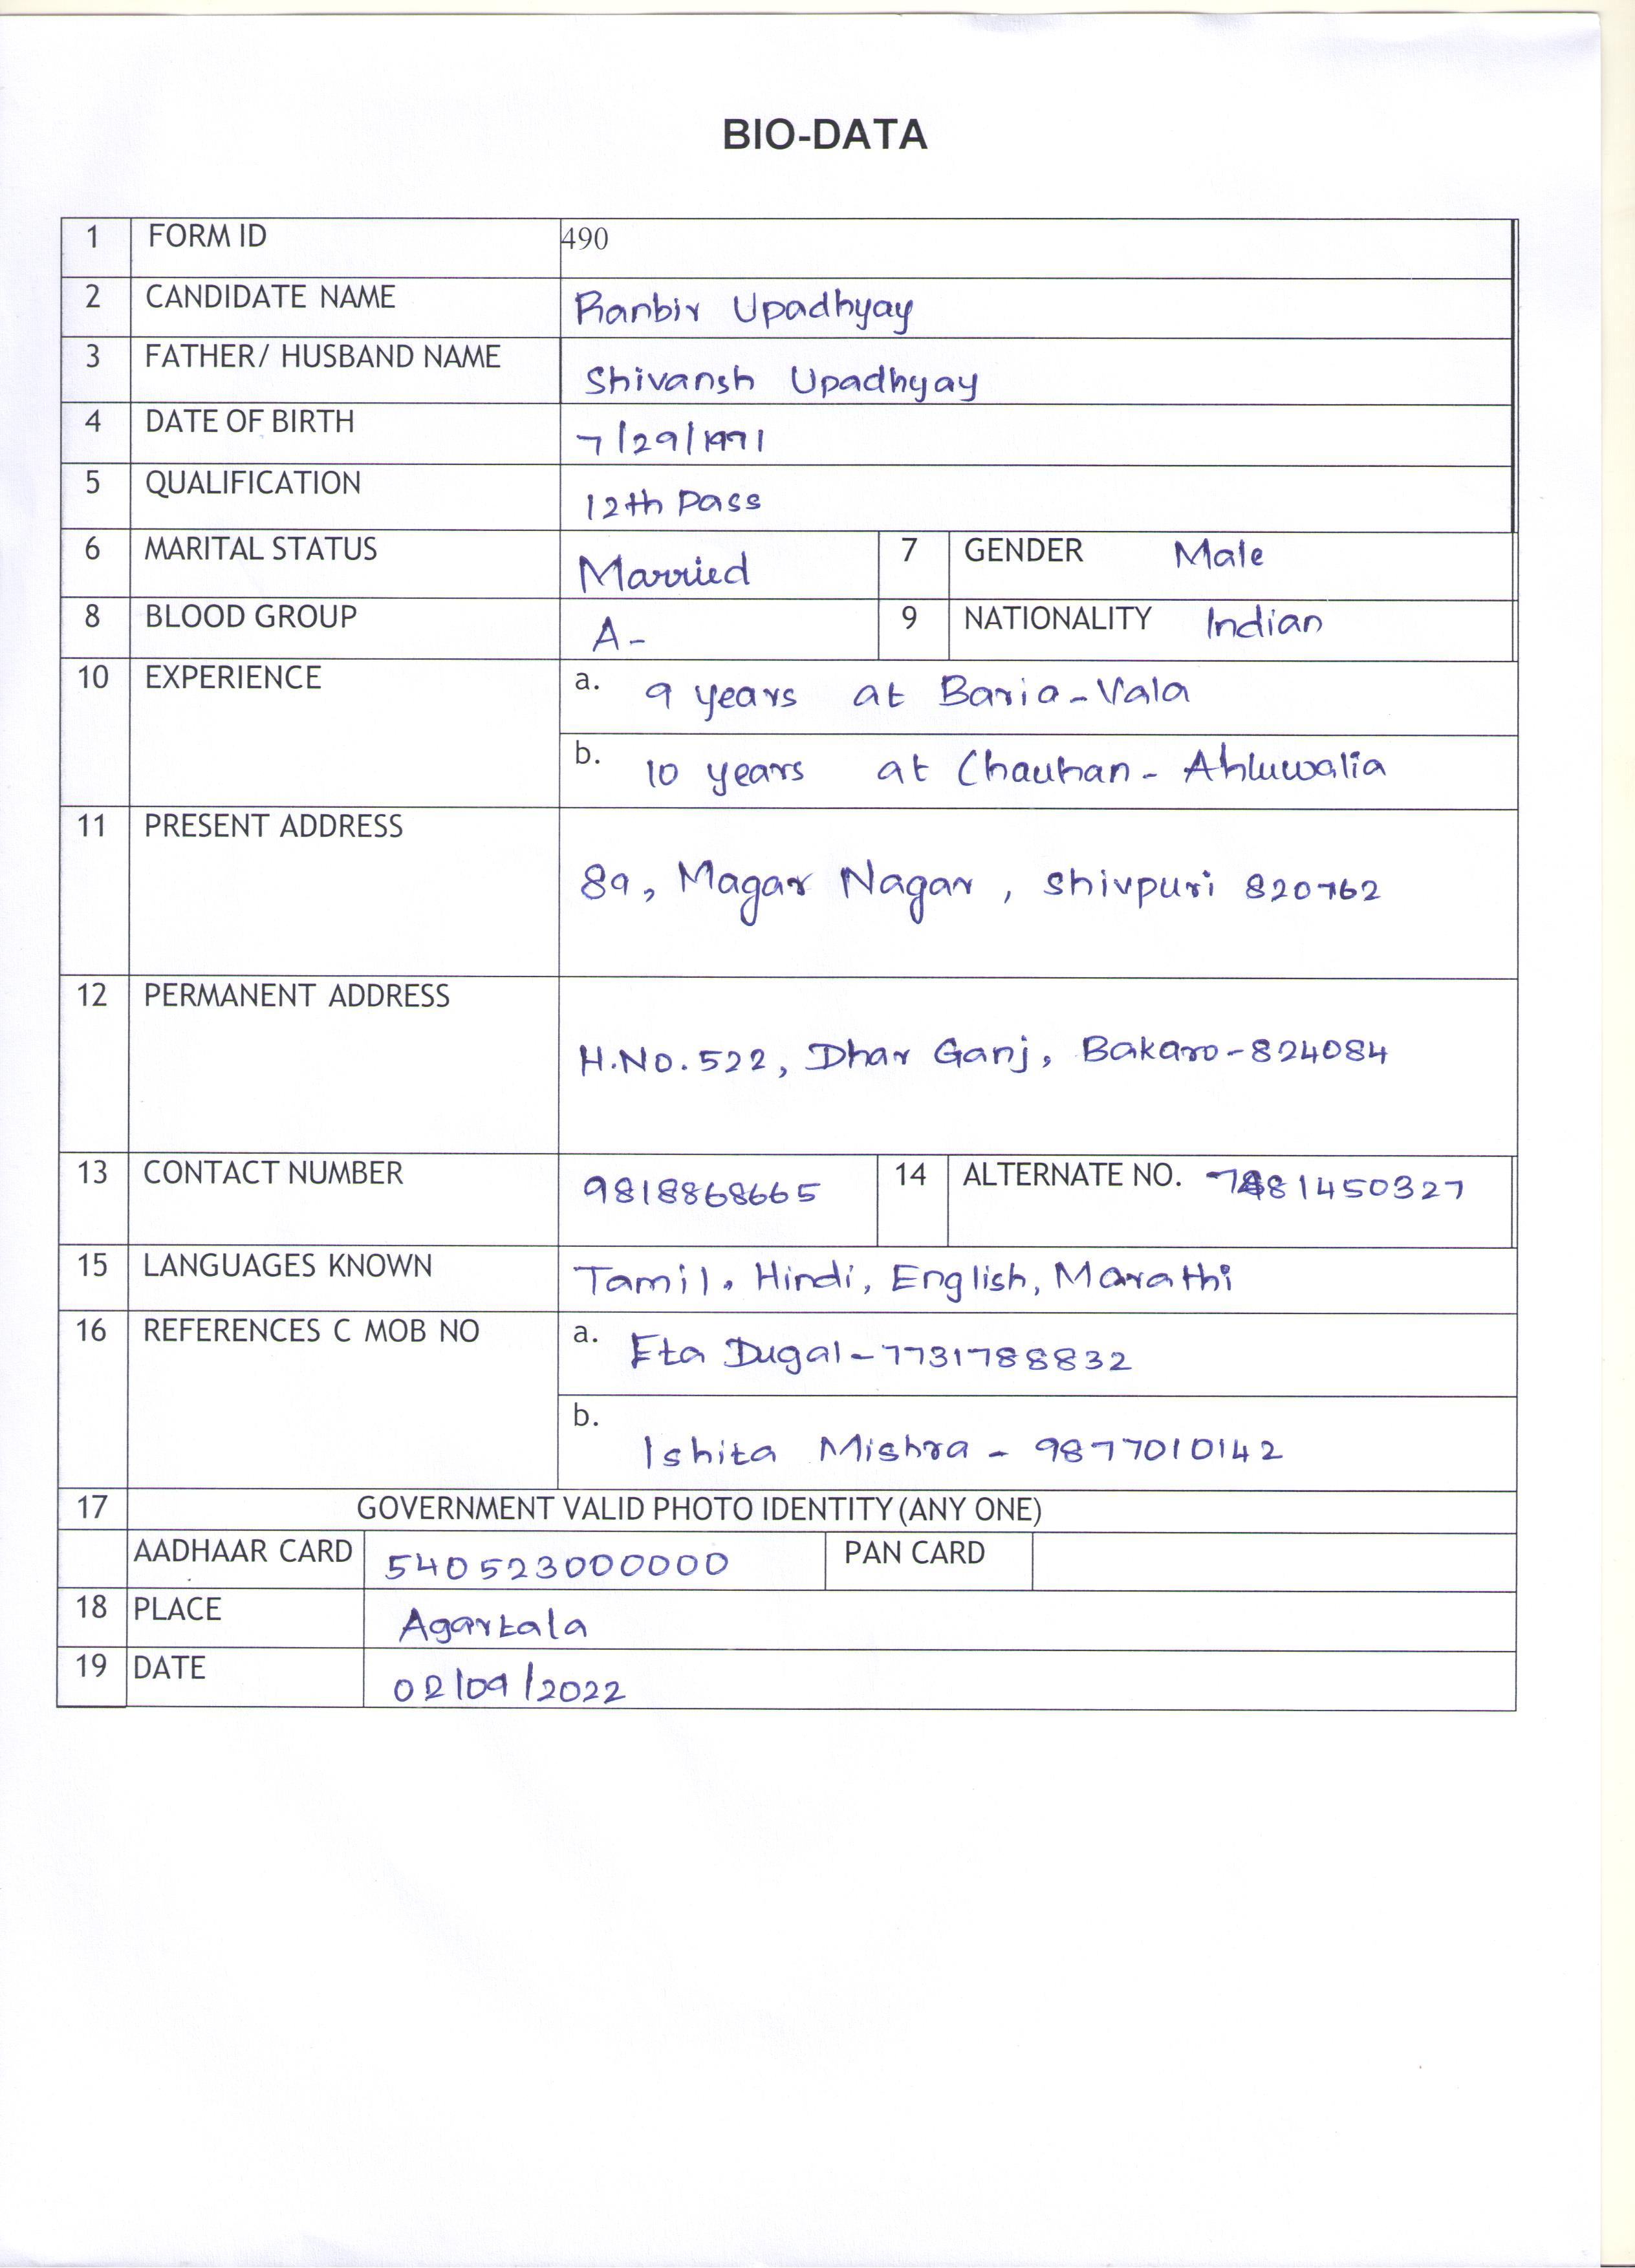 BIO-DATA
1 FORM ID 490
2 CANDIDATE NAME Ranbir Upadhyay
3 FATHER/ HUSBAND NAME Shivansh Upadhyay
4 DATE OF BIRTH 7/29/1971
5 QUALIFICATION 12th Pass
6 MARITAL STATUS Married 7 GENDER Male
8 BLOOD GROUP A- 9 NATIONALITY Indian
10 EXPERIENCE a. 9 years at Baria-Vala
b. 10 years at Chauhan- Ahluwalia
11 PRESENT ADDRESS
89, Magar Nagar, Shivpuri 820762
12 PERMANENT ADDRESS
H.No. 522, Dhar Ganj, Bakaro-824084
13 CONTACT NUMBER 9818868665 14 ALTERNATE NO.
15 LANGUAGES KNOWN Tamil, Hindi, English, Marathi
16 REFERENCES C MOB NO a. Eta Dugal-7731788832
b. Ishita Mishra - 9877010142
17 GOVERNMENT VALID PHOTO IDENTITY (ANY ONE)
AADHAAR CARD 540523000000 PAN CARD
18 PLACE Agartala
19 DATE 02/09/2022